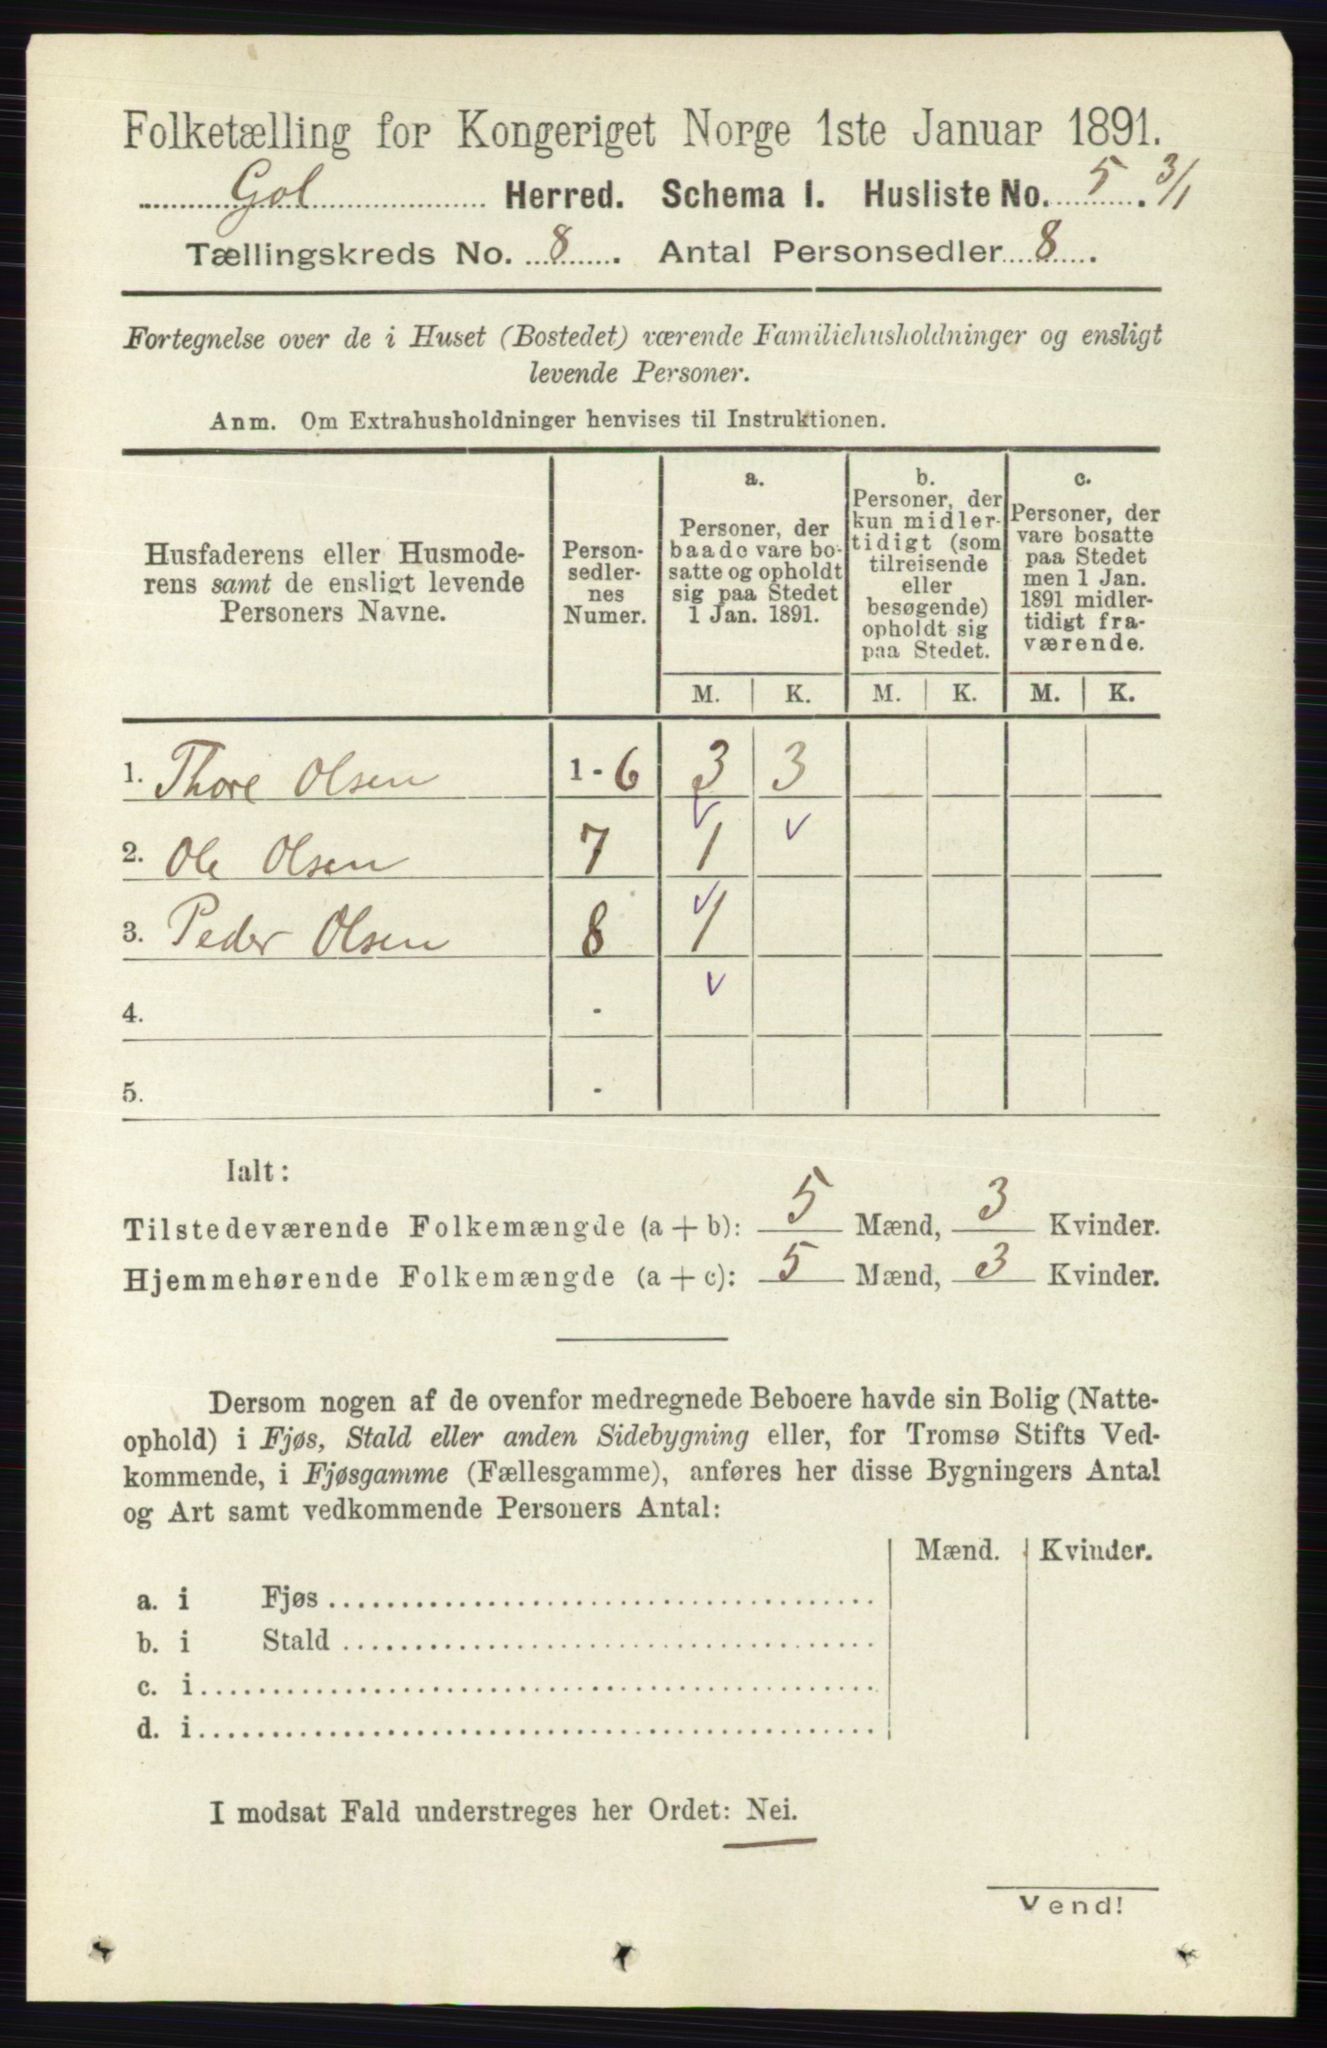 Folketælling for Kongeriget Norge 1ste Januar 1891.
Gol Herred. Schema I. Husliste No. 5. 3/1
Tællingskreds No. 8. Antal Personsedler 8.
Fortegnelse over de i Huset (Bostedet) værende Familiehusholdninger og ensligt
levende Personer.
Anm. Om Extrahusholdninger henvises til Instruktionen.
Husfaderens eller Husmode-
rens samt de ensligt levende
Personers Navne.
Person-
sedler-
nes
Numer.
a.
Personer, der
baade vare bo-
satte og opholdt
sig paa Stedet
1 Jan. 1891.
b.
Personer, der
kun midler-
tidigt (som
tilreisende
eller
besøgende)
opholdt sig
paa Stedet.
c.
Personer, der
vare bosatte
paa Stedet
men 1 Jan.
1891 midler-
tidigt fra-
værende.
M. K. M. K. M. K.
1. Thore Olsen 1 - 6 3 3
2. Ole Olsen 7 1
3. Peder Olsen 8 1
4. -
5. -
Ialt:
Tilstedeværende Folkemængde (a + b): 5 Mænd, 3 Kvinder.
Hjemmehørende Folkemængde (a + c): 5 Mænd, 3 Kvinder.
Dersom nogen af de ovenfor medregnede Beboere havde sin Bolig (Natte-
ophold) i Fjøs, Stald eller anden Sidebygning eller, for Tromsø Stifts Ved-
kommende, i Fjøsgamme (Fællesgamme), anføres her disse Bygningers Antal
og Art samt vedkommende Personers Antal:
Mænd. Kvinder.
a. i Fjøs
b. i Stald
c. i
d. i
I modsat Fald understreges her Ordet: Nei.
Vend!